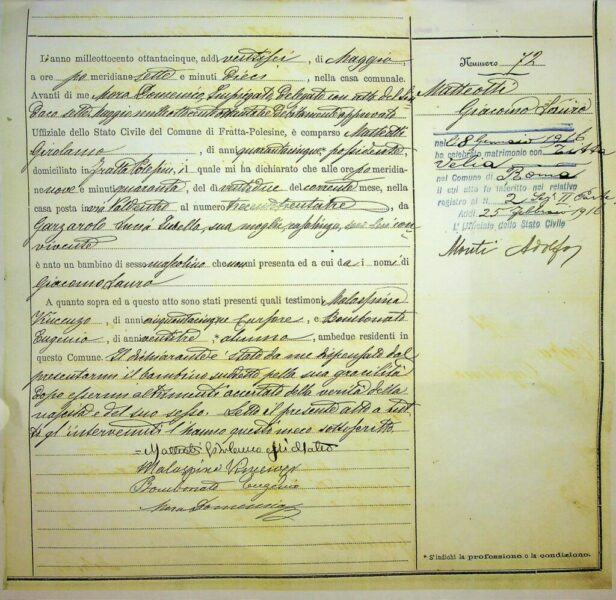 L'anno milleottocento ottantacinque, addì ventisei, di Maggio,
a ore po meridiane sette e minuti dieci, nella casa comunale.
Avanti di me Mora Domenico, Impiegato delegato con atto del Sin
daco sette maggio milleottocento debitamente approvato
Uffiziale dello Stato Civile del Comune di Fratta-Polesine, è comparso Matteotti
Girolamo, di anni quarantacinque, possidente
domiciliato in Fratta Polesine, il quale mi ha dichiarato che alle ore po meridiane
nove e minuti quaranta, del ventidue del corrente mese, nella
casa posta in via Valdentro al numero trecentotrentatre, da
Garzarolo Lucia Isabella, sua moglie, casalinga, seco lui con
vivente
è nato un bambino di sesso mascolino che non mi presenta ed a cui dà i nomi di
Giacomo Lauro
A quanto sopra ed a questo atto sono stati presenti quali testimoni Malaspina
Vincenzo, di anni cinquantacinque Cursore, e Bombonati
Eugenio, di anni ventitre alunno, ambedue residenti in
questo Comune. Il dichiarante è stato da me dispensato dal
presentarmi il bambino suddetto per la sua gracilità
dopo essermi altrimenti accertato della verità della
nascita e del suo sesso. Letto il presente atto a tut
ti gl'intervenuti l'hanno questi meco sottoscritto.
Matteotti Girolamo
Malaspina Vincenzo
Bombonati Eugenio
Mora Domenico
Numero 72
Matteotti
Giacomo Lauro
nel 8 Gennaio 1916
ha celebrato matrimonio con
Velia
nel Comune di Roma
il cui atto fu inserito nel relativo
registro al n. 2 II Parte
Addì 25 Febbraio 1916
L'Uffiziale dello Stato Civile
Monti Adolfo
* S'indichi la professione o la condizione.